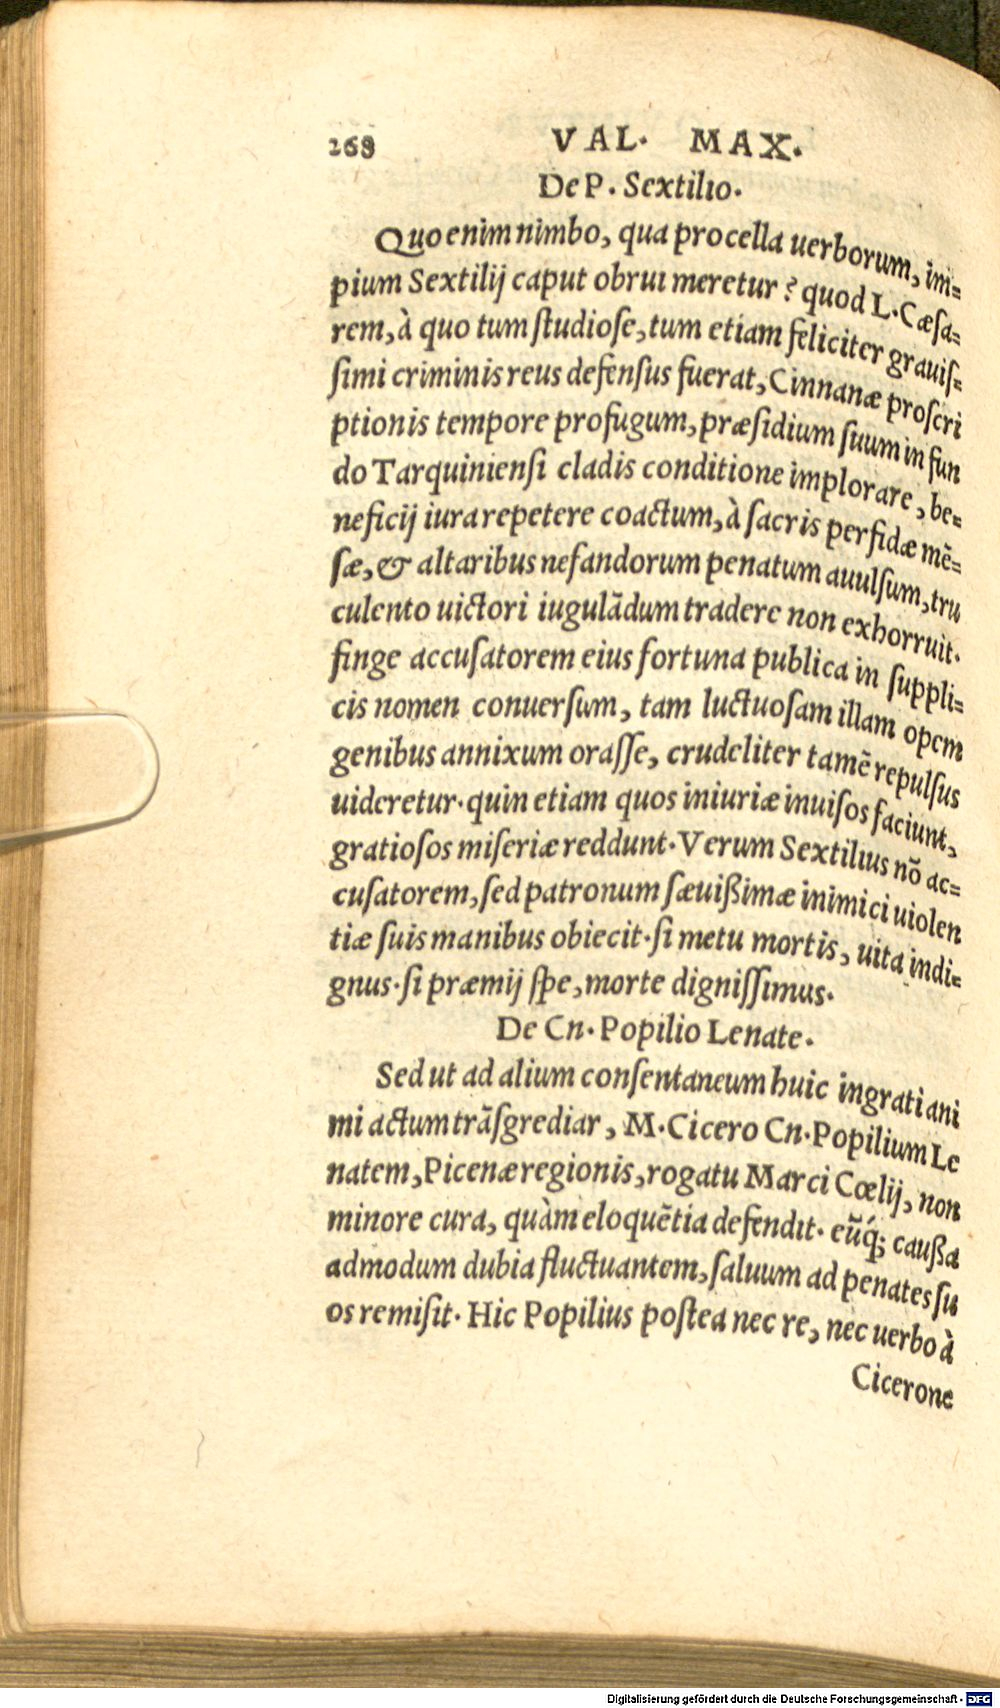 268 VAL. MAX.
De P. Sextilio.
Quo enim nimbo, qua procella uerborum, im=
pium Sextilij caput obrui meretur? quod L. Cæsa=
rem, à quo tum ſtudioſe, tum etiam feliciter grauiſ=
ſimi criminis reus defenſus fuerat, Cinnanæ proſcri
ptionis tempore profugum, præſidium ſuum in fun
do Tarquinienſi cladis conditione implorare, be=
neficij iura repetere coactum, à ſacris perfidæ mē=
ſæ, & altaribus nefandorum penatum auulſum, tru
culento uictori iugulādum tradere non exhorruit.
finge accuſatorem eius fortuna publica in ſuppli=
cis nomen conuerſum, tam luctuoſam illam opem
genibus annixum oraſſe, crudeliter tamē repulſus
uideretur. quin etiam quos iniuriæ inuiſos faciunt,
gratioſos miſeriæ reddunt. Verum Sextilius nō ac=
cuſatorem, ſed patronum ſæuißimæ inimici uiolen
tiæ ſuis manibus obiecit. ſi metu mortis, uita indi=
gnus. ſi præmij ſpe, morte digniſſimus.
De Cn. Popilio Lenate.
Sed ut ad alium conſentaneum huic ingrati ani
mi actum trāſgrediar, M. Cicero Cn. Popilium Le
natem, Picenæ regionis, rogatu Marci Cœlij, non
minore cura, quàm eloquētia defendit. eūq́; cauſſa
admodum dubia fluctuantem, ſaluum ad penates ſu
os remiſit. Hic Popilius poſtea nec re, nec uerbo à
Cicerone
Digitalisierung gefördert durch die Deutsche Forschungsgemeinschaft - DFG